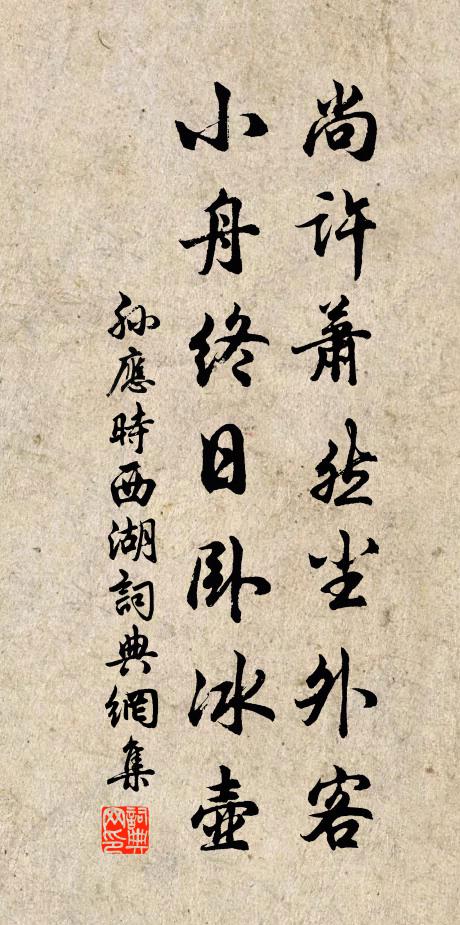 尚許蕭然尘外客
小舟終日卧冰壺
孙應時西湖詞典網集
詞典网印